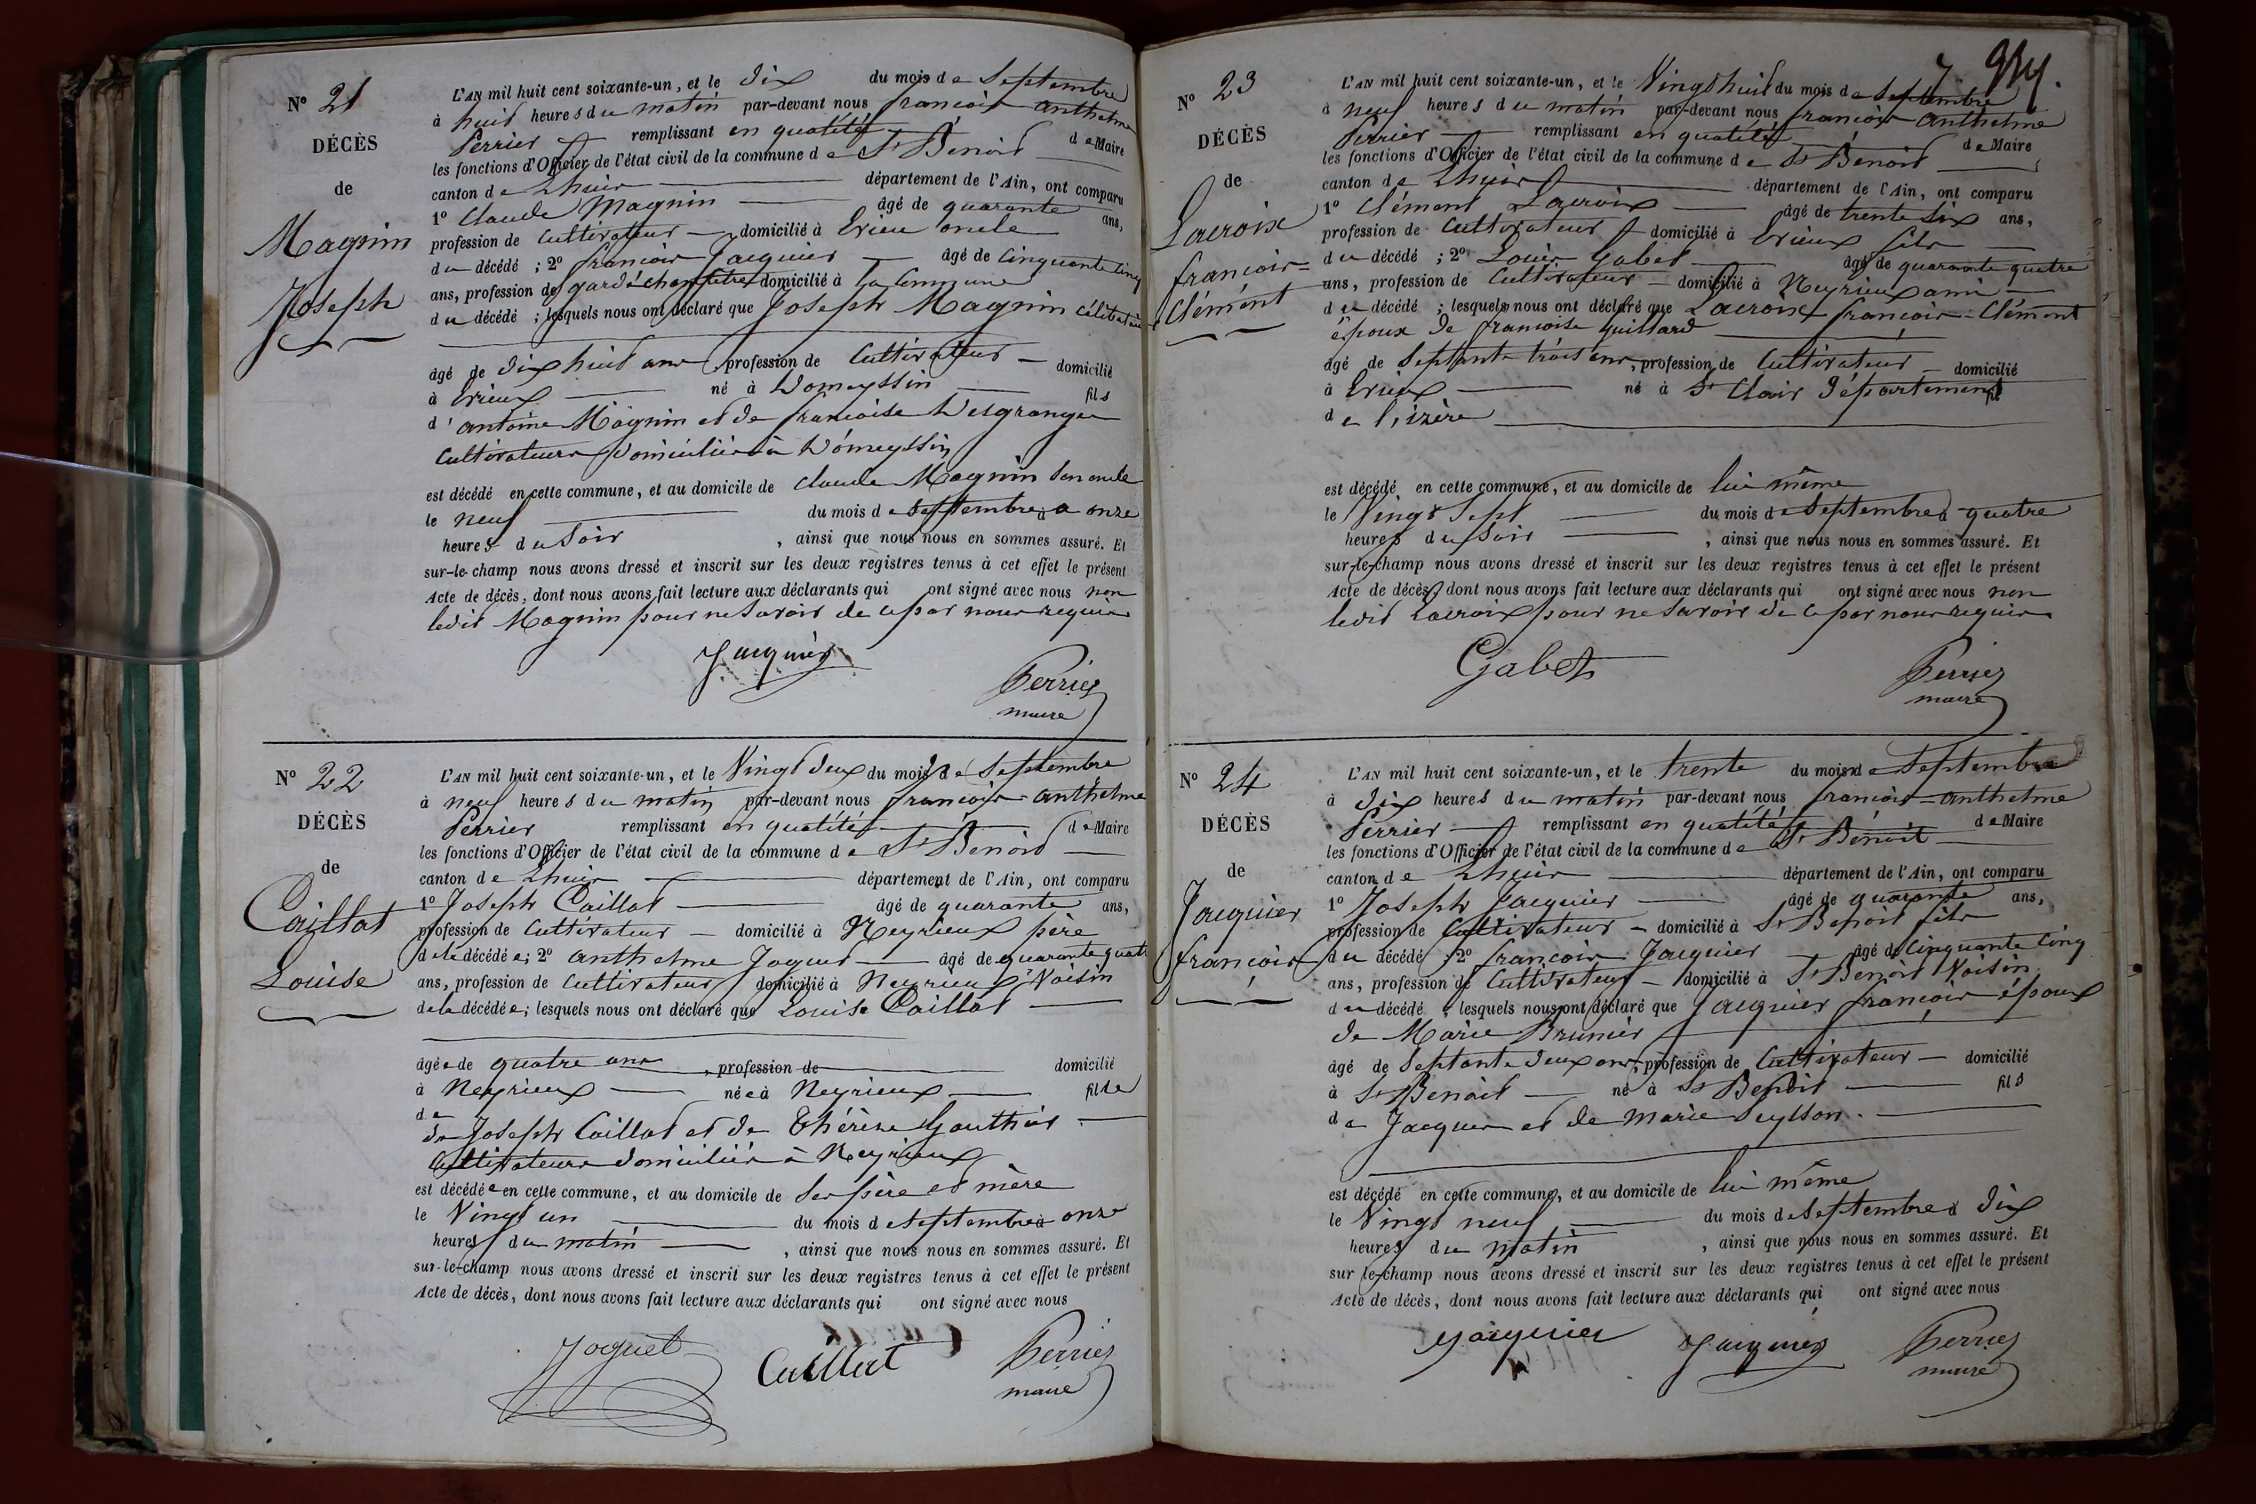 N° 21
DÉCÈS
de
Magnin
Joseph
L'AN mil huit cent soixante-un, et le dix du mois de Septembre
à huit heures du matin par-devant nous françois anthelme
Perrier remplissant en qualité de Maire
les fonctions d'Officier de l'état civil de la commune de St Benoit
canton de Lhuis département de l'Ain, ont comparu
1° Claude Magnin âgé de quarante ans,
profession de Cultivateur domicilié à Erieu oncle
du décédé ; 2° françois Jacquier âgé de Cinquante Cinq
ans, profession de garde champêtre domicilié à la Commune
du décédé ; lesquels nous ont déclaré que Joseph Magnin Célibataire
âgé de dix huit ans profession de Cultivateur domicilié
à Erieux né à Domeyssin fils
d'antoine Magnin et de francoise Desgranges
Cultivateurs domiciliés à Domeyssin
est décédé en cette commune, et au domicile de Claude Magnin son oncle
le neuf du mois de Septembre à onze
heures du Soir , ainsi que nous nous en sommes assuré. Et
sur-le-champ nous avons dressé et inscrit sur les deux registres tenus à cet effet le présent
Acte de décès, dont nous avons fait lecture aux déclarants qui ont signé avec nous non
ledit Magnin pour ne Savoir de ce par nous requis
Jacquier
Perrier
maire
N° 22
DÉCÈS
de
Caillat
Louise
L'AN mil huit cent soixante-un, et le Vingt deux du mois de Septembre
à neuf heures du matin par-devant nous françois anthelme
Perrier remplissant en qualité de Maire
les fonctions d'Officier de l'état civil de la commune de St Benoit
canton de Lhuis département de l'Ain, ont comparu
1° Joseph Caillat âgé de quarante ans,
profession de Cultivateur domicilié à Neyrieux père
de la décédée; 2° anthelme Joguet âgé de quarante quatre
ans, profession de Cultivateur domicilié à Neyrieux Voisin
de la décédée; lesquels nous ont déclaré que Louise Caillat
âgée de quatre ans , profession de domicilié
à Neyrieux née à Neyrieux fille
de
de Joseph Caillat et de Thérèse Gauthier
Cultivateurs domiciliés à Neyrieux
est décédée en cette commune, et au domicile de Ses père et mère
le Vingt un du mois de Septembre à onze
heures du matin , ainsi que nous nous en sommes assuré. Et
sur-le-champ nous avons dressé et inscrit sur les deux registres tenus à cet effet le présent
Acte de décès, dont nous avons fait lecture aux déclarants qui ont signé avec nous
Joguet
Caillat
Perrier
maire
7
N° 23
DÉCÈS
de
Lacroix
françois=
Clément
L'AN mil huit cent soixante-un, et le Vingt huit du mois de Septembre
à neuf heures du matin par-devant nous françois anthelme
Perrier remplissant en qualité de Maire
les fonctions d'Officier de l'état civil de la commune de St Benoit
canton de Lhuis département de l'Ain, ont comparu
1° Clément Lacroix âgé de trente Six ans,
profession de Cultivateur domicilié à Erieux fils
du décédé ; 2° Louis Gabet âgé de quarante quatre
ans, profession de Cultivateur domicilié à Neyrieux ami
du décédé ; lesquels nous ont déclaré que Lacroix françois-Clément
époux de francoise Guillard
âgé de Septante trois ans, profession de Cultivateur domicilié
à Erieux né à St Clair département fil
de l'izère
est décédé en cette commune, et au domicile de lui même
le Vingt Sept du mois de Septembre à quatre
heures du Soir , ainsi que nous nous en sommes assuré. Et
sur-le-champ nous avons dressé et inscrit sur les deux registres tenus à cet effet le présent
Acte de décès, dont nous avons fait lecture aux déclarants qui ont signé avec nous non
ledit Lacroix pour ne Savoir de ce par nous requis
Gabet
Perrier
maire
N° 24
DÉCÈS
de
Jacquier
françois
L'AN mil huit cent soixante-un, et le trente du mois de Septembre
à dix heures du matin par-devant nous françois=anthelme
Perrier remplissant en qualité de Maire
les fonctions d'Officier de l'état civil de la commune de St Benoit
canton de Lhuis département de l'Ain, ont comparu
1° Joseph Jacquier âgé de quarante ans,
profession de Cultivateur domicilié à St Benoit fils
du décédé ; 2° françois Jacquier âgé de Cinquante Cinq
ans, profession de Cultivateur domicilié à St Benoit Voisin
du décédé ; lesquels nous ont déclaré que Jacquier françois époux
de Marie Brunier
âgé de Septante deux ans, profession de Cultivateur domicilié
à St Benoit né à St Benoit fils
de Jacquier et de Marie Peysson
est décédé en cette commune, et au domicile de lui même
le Vingt neuf du mois de Septembre à dix
heures du matin , ainsi que nous nous en sommes assuré. Et
sur le-champ nous avons dressé et inscrit sur les deux registres tenus à cet effet le présent
Acte de décès, dont nous avons fait lecture aux déclarants qui ont signé avec nous
Jacquier
Jacquier
Perrier
maire